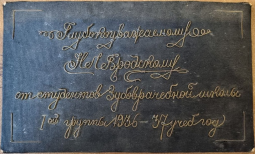 Глубокоуважаемому
Н. Л. Вродскому
от студентов Зубоврачебной школы
I ой группы 1936-37 учеб год